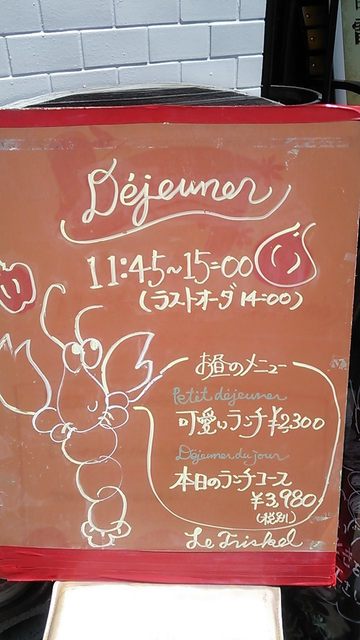 Déjeuner
11:45~15:00
(ラストオーダ14:00)
お昼のメニュー
Petit déjeuner
可愛いランチ ¥2,300
Déjeuner du jour
本日のランチコース
¥3,980
(税別)
Le Triskel